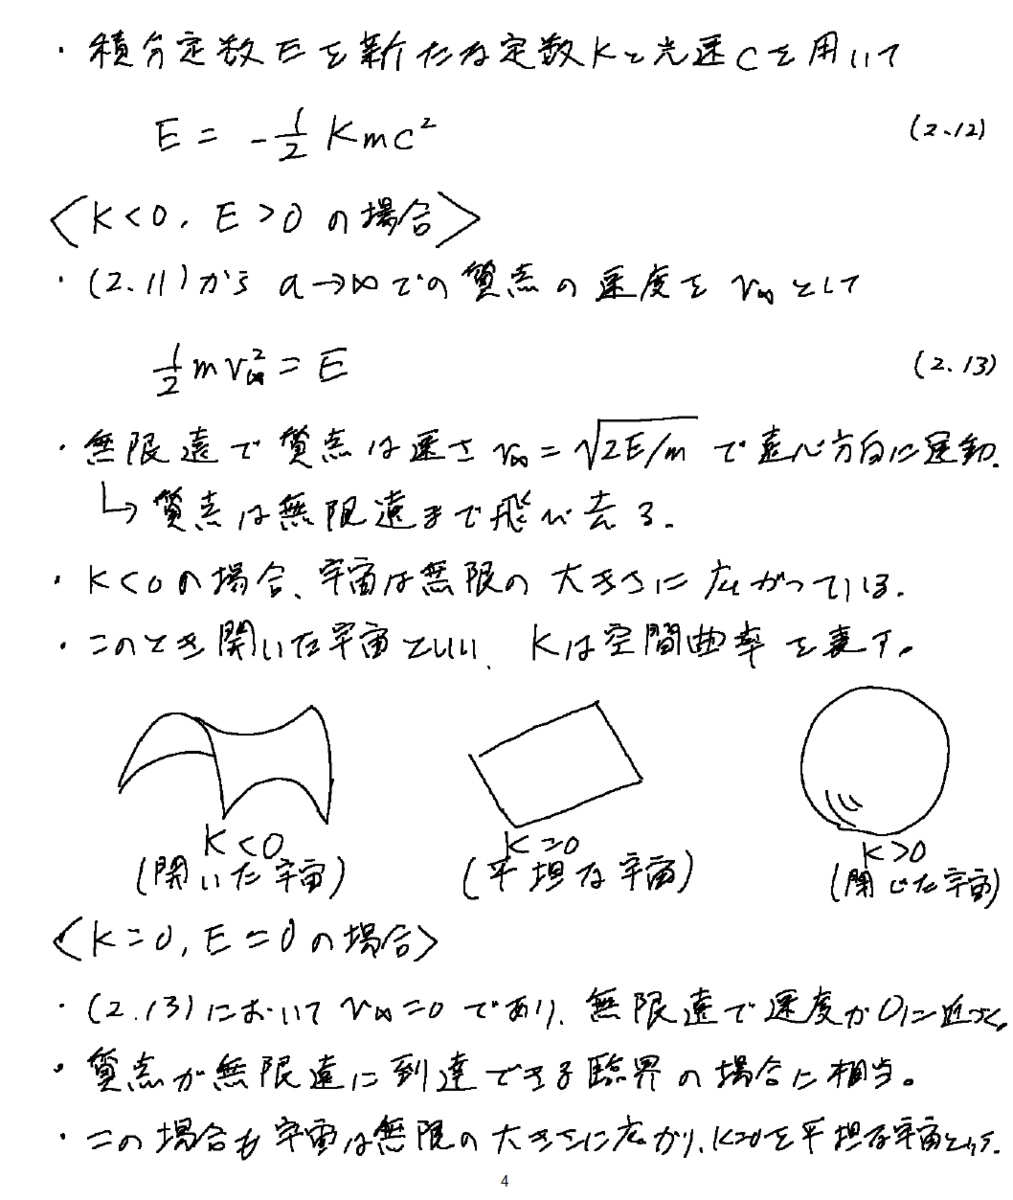 ・積分定数Eを新たな定数Kと光速cを用いて
E = -1/2 Kmc² (2.12)
〈K<0, E>0の場合〉
・(2.11)から a→∞での質点の速度を v∞として
1/2 mv∞² = E (2.13)
・無限遠で質点は速さ v∞ = √2E/m で遠心方向に運動.
↳ 質点は無限遠まで飛び去る.
・K<0の場合、宇宙は無限の大きさに広がっている.
・このとき開いた宇宙といい、Kは空間曲率を表す。
K<0 K=0 K>0
(開いた宇宙) (平坦な宇宙) (閉じた宇宙)
〈K=0, E=0の場合〉
・(2.13)において v∞=0 であり、無限遠で速度が0に近づく。
・質点が無限遠に到達できる臨界の場合に相当。
・この場合も宇宙は無限の大きさに広がり、K=0を平坦な宇宙という.
4